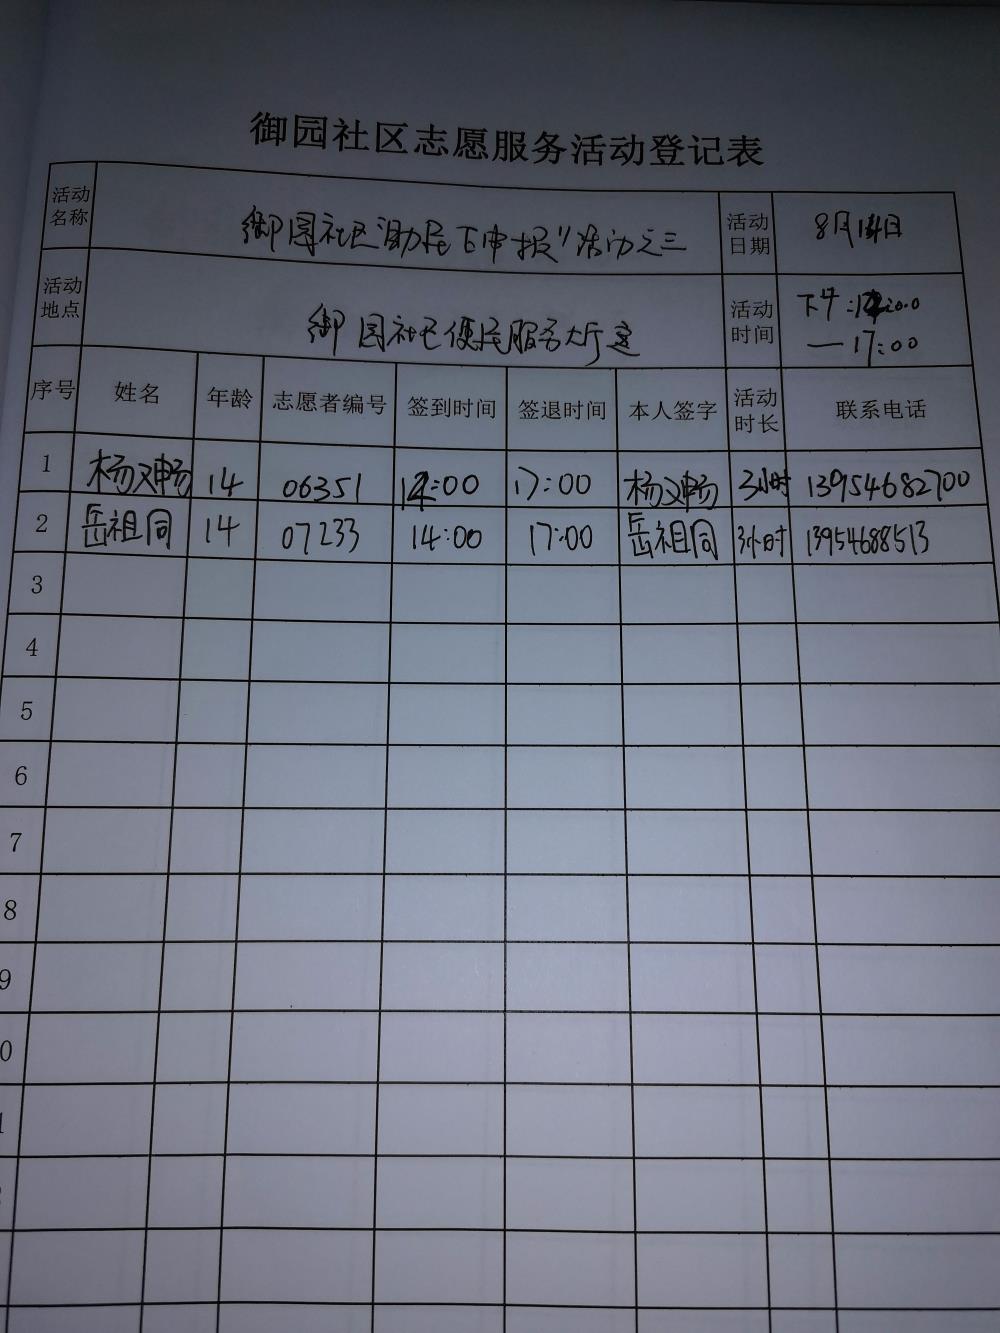 御园社区志愿服务活动登记表
活动名称 御园社区"助民下申报"活动之三 活动日期 8月14日
活动地点 御园社区便民服务大厅 活动时间 下午:
—17:00
序号 姓名 年龄 志愿者编号 签到时间 签退时间 本人签字 活动时长 联系电话
1 杨双畅 14 06351 14:00 17:00 杨双畅 3小时 13954682700
2 岳祖同 14 07233 14:00 17:00 岳祖同 3小时 13954688513
3
4
5
6
7
8
9
0
1